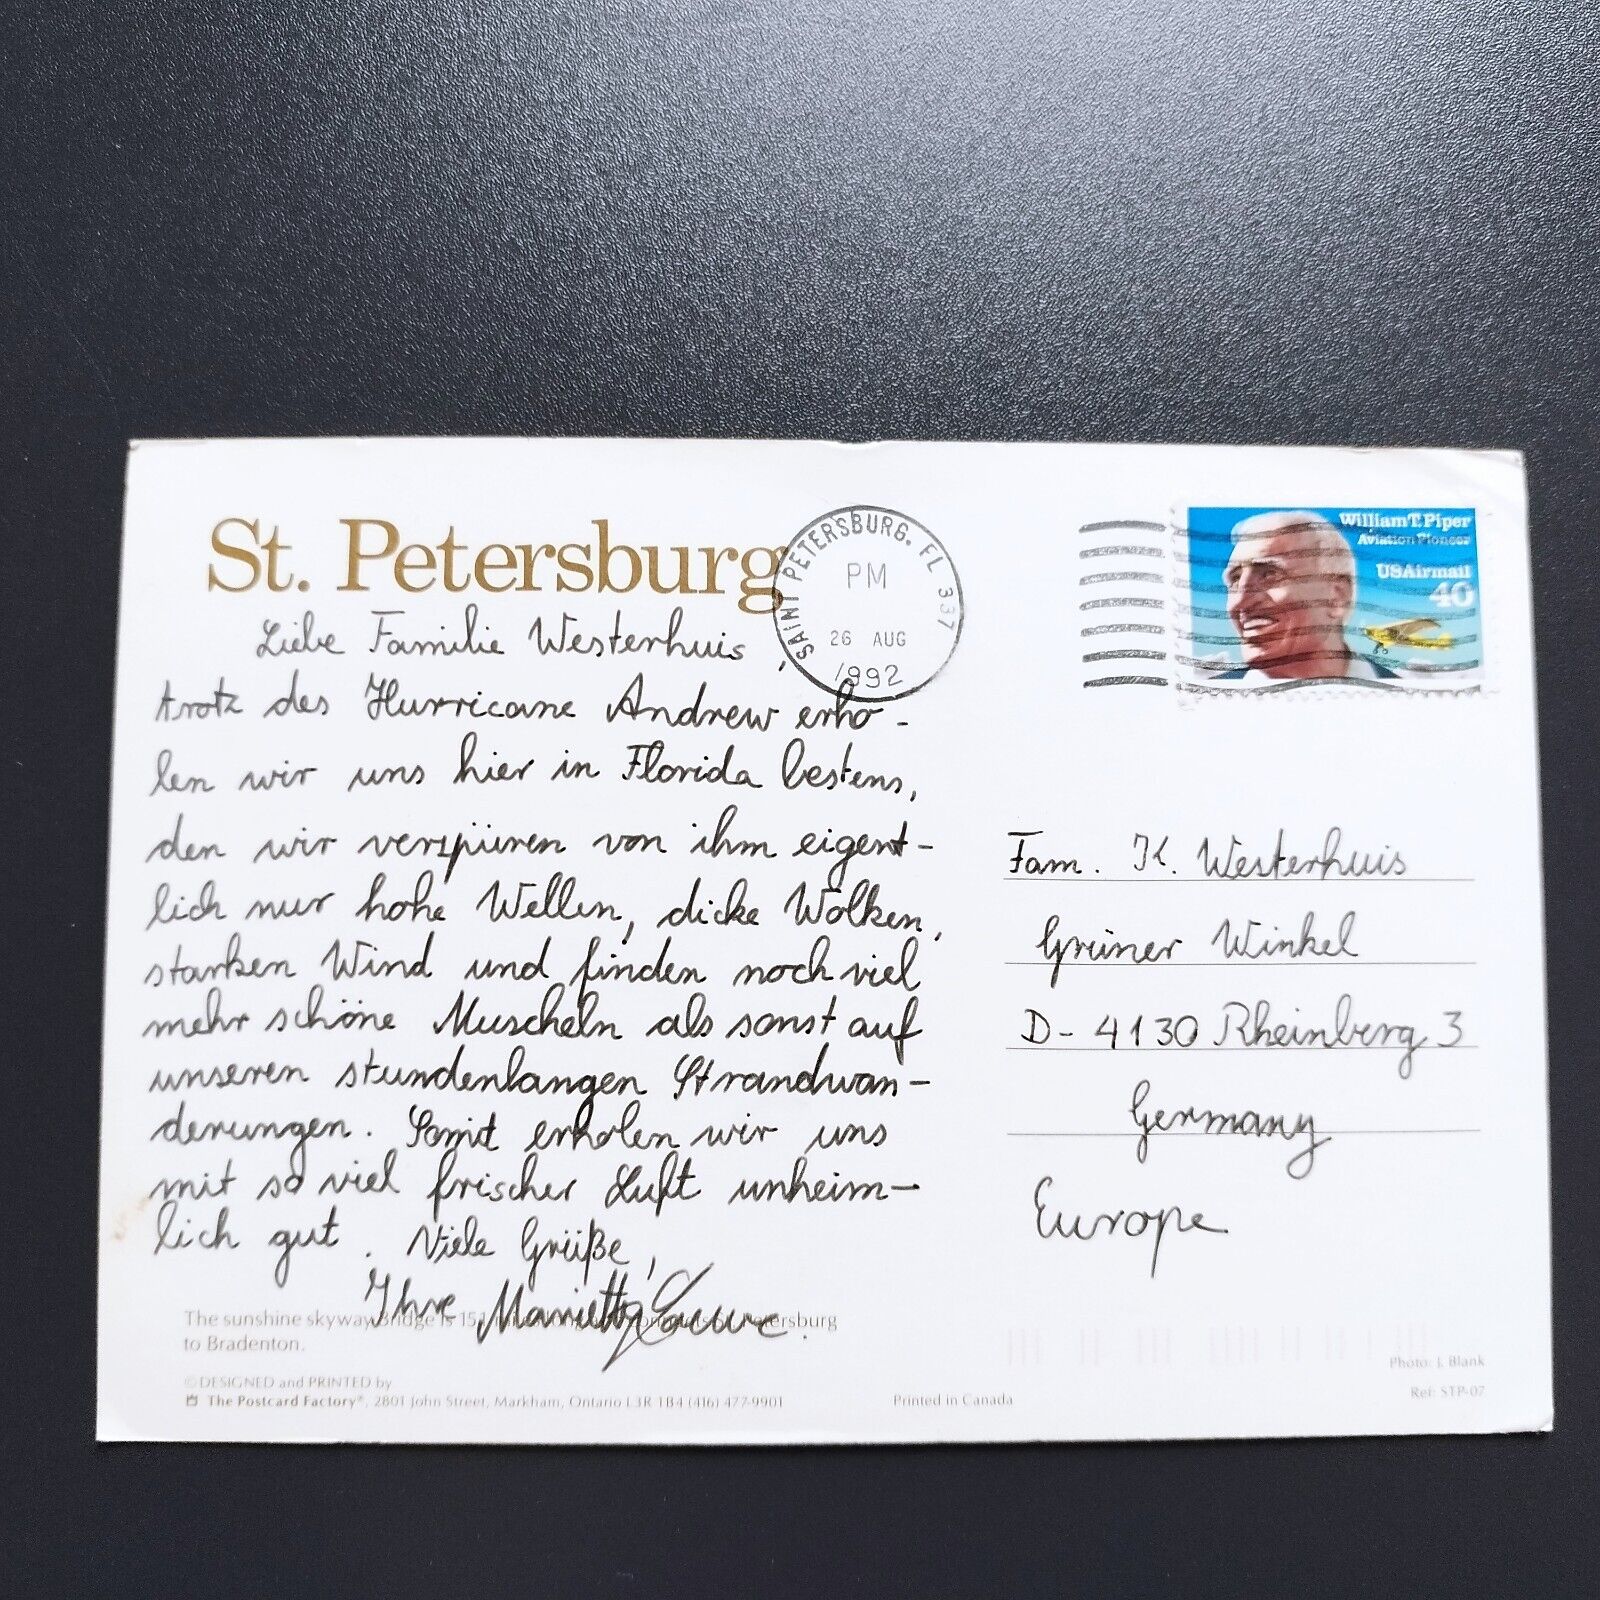 St. Petersburg
SAINT PETERSBURG, FL 337
PM
26 AUG
1992
William T. Piper
Aviation Pioneer
USAirmail
40
Liebe Familie Westerhuis,
trotz des Hurricane Andrew erho-
len wir uns hier in Florida bestens,
den wir verspüren von ihm eigent-
lich nur hohe Wellen, dicke Wolken,
starken Wind und finden noch viel
mehr schöne Muscheln als sonst auf
unseren stundenlangen Strandwan-
derungen. Somit erholen wir uns
mit so viel frischer Luft unheim-
lich gut. Viele Grüße,
Ihre Marietta
Fam. K. Westerhuis
Grüner Winkel
D-4130 Rheinberg 3
Germany
Europe
The sunshine skyway Bridge is 15 Petersburg
to Bradenton.
© DESIGNED and PRINTED by
The Postcard Factory®, 2801 John Street, Markham, Ontario L3R 1B4 (416) 477-9901
Printed in Canada
Photo: J. Blank
Ref: STP-07